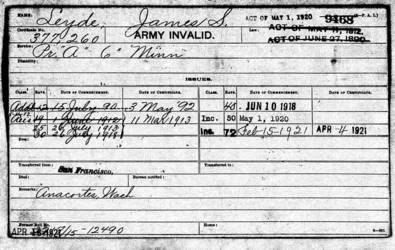 Leyde, James S. ACT OF MAY 1, 1920 9468
Certificate No. 377,260 ARMY INVALID. Law: ACT OF MAY 11, 1912,
ACT OF JUNE 27, 1890.
Service: Pr. "A" 6" Minn"
Disability:
ISSUES.
CLASS. RATE. DATE OF COMMENCEMENT. DATE OF CERTIFICATE. CLASS. RATE. DATE OF COMMENCEMENT. DATE OF CERTIFICATE.
12 15 July 90 3 May '92 40 JUN 10 1918
19 1912 11 Mar 1913 Inc. 50 May 1, 1920
25 26 July 1913 Inc. 72 Feb 15-1921 APR -4 1921
30 26 July 1918
Died:
Transferred from: San Francisco, Bureau notified:
Transferred to:
Remarks:
Anacortes, Wash
Former Roll No. Home:
APR 1921 12490